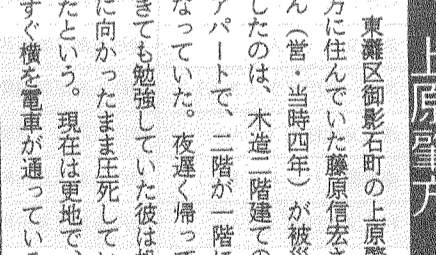 上原肇方
東灘区御影石町の上原肇
方に住んでいた藤原信宏さ
ん（営・当時四年）が被災
したのは、木造二階建ての
アパートで、二階が一階に
なっていた。夜遅く帰って
きても勉強していた彼は机
に向かったまま圧死してい
たという。現在は更地で、
すぐ横を電車が通っている